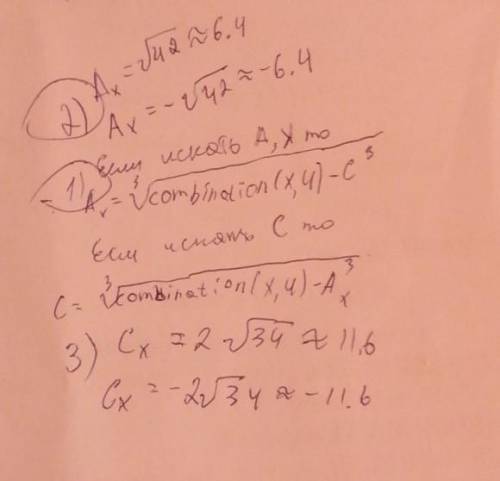 2) Aₓ = √42 ≈ 6.4
Aₓ = -√42 ≈ -6.4
-1) Если искать A, X то
Aₓ = ³√combination(x,4) - C³
Если искать C то
C = ³√combination(x,4) - Aₓ³
3) Cₓ = 2√34 ≈ 11,6
Cₓ = -2√34 ≈ -11.6